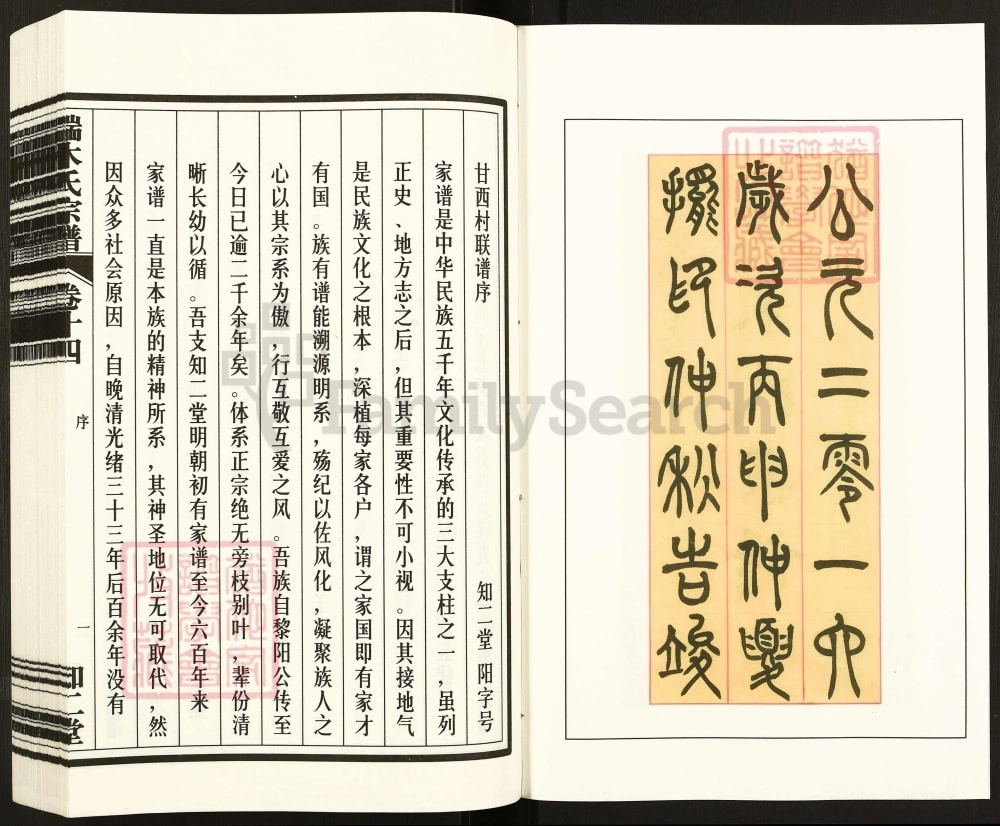 公元二零一六
歲次丙申仲夏
擺印仲秋告竣
甘西村联谱序
知二堂 阳字号
家谱是中华民族五千年文化传承的三大支柱之一，虽列
正史、地方志之后，但其重要性不可小视。因其接地气
是民族文化之根本，深植每家各户，谓之家国即有家才
有国。族有谱能溯源明系，殇纪以佐风化，凝聚族人之
心以其宗系为傲，行互敬互爱之风。吾族自黎阳公传至
今日已逾二千余年矣。体系正宗绝无旁枝别叶，辈份清
晰长幼以循。吾支知二堂明朝初有家谱至今六百年来
家谱一直是本族的精神所系，其神圣地位无可取代，然
因众多社会原因，自晚清光绪三十三年后百余年没有
端木氏宗譜
卷十四
序
一
知二堂
FamilySearch